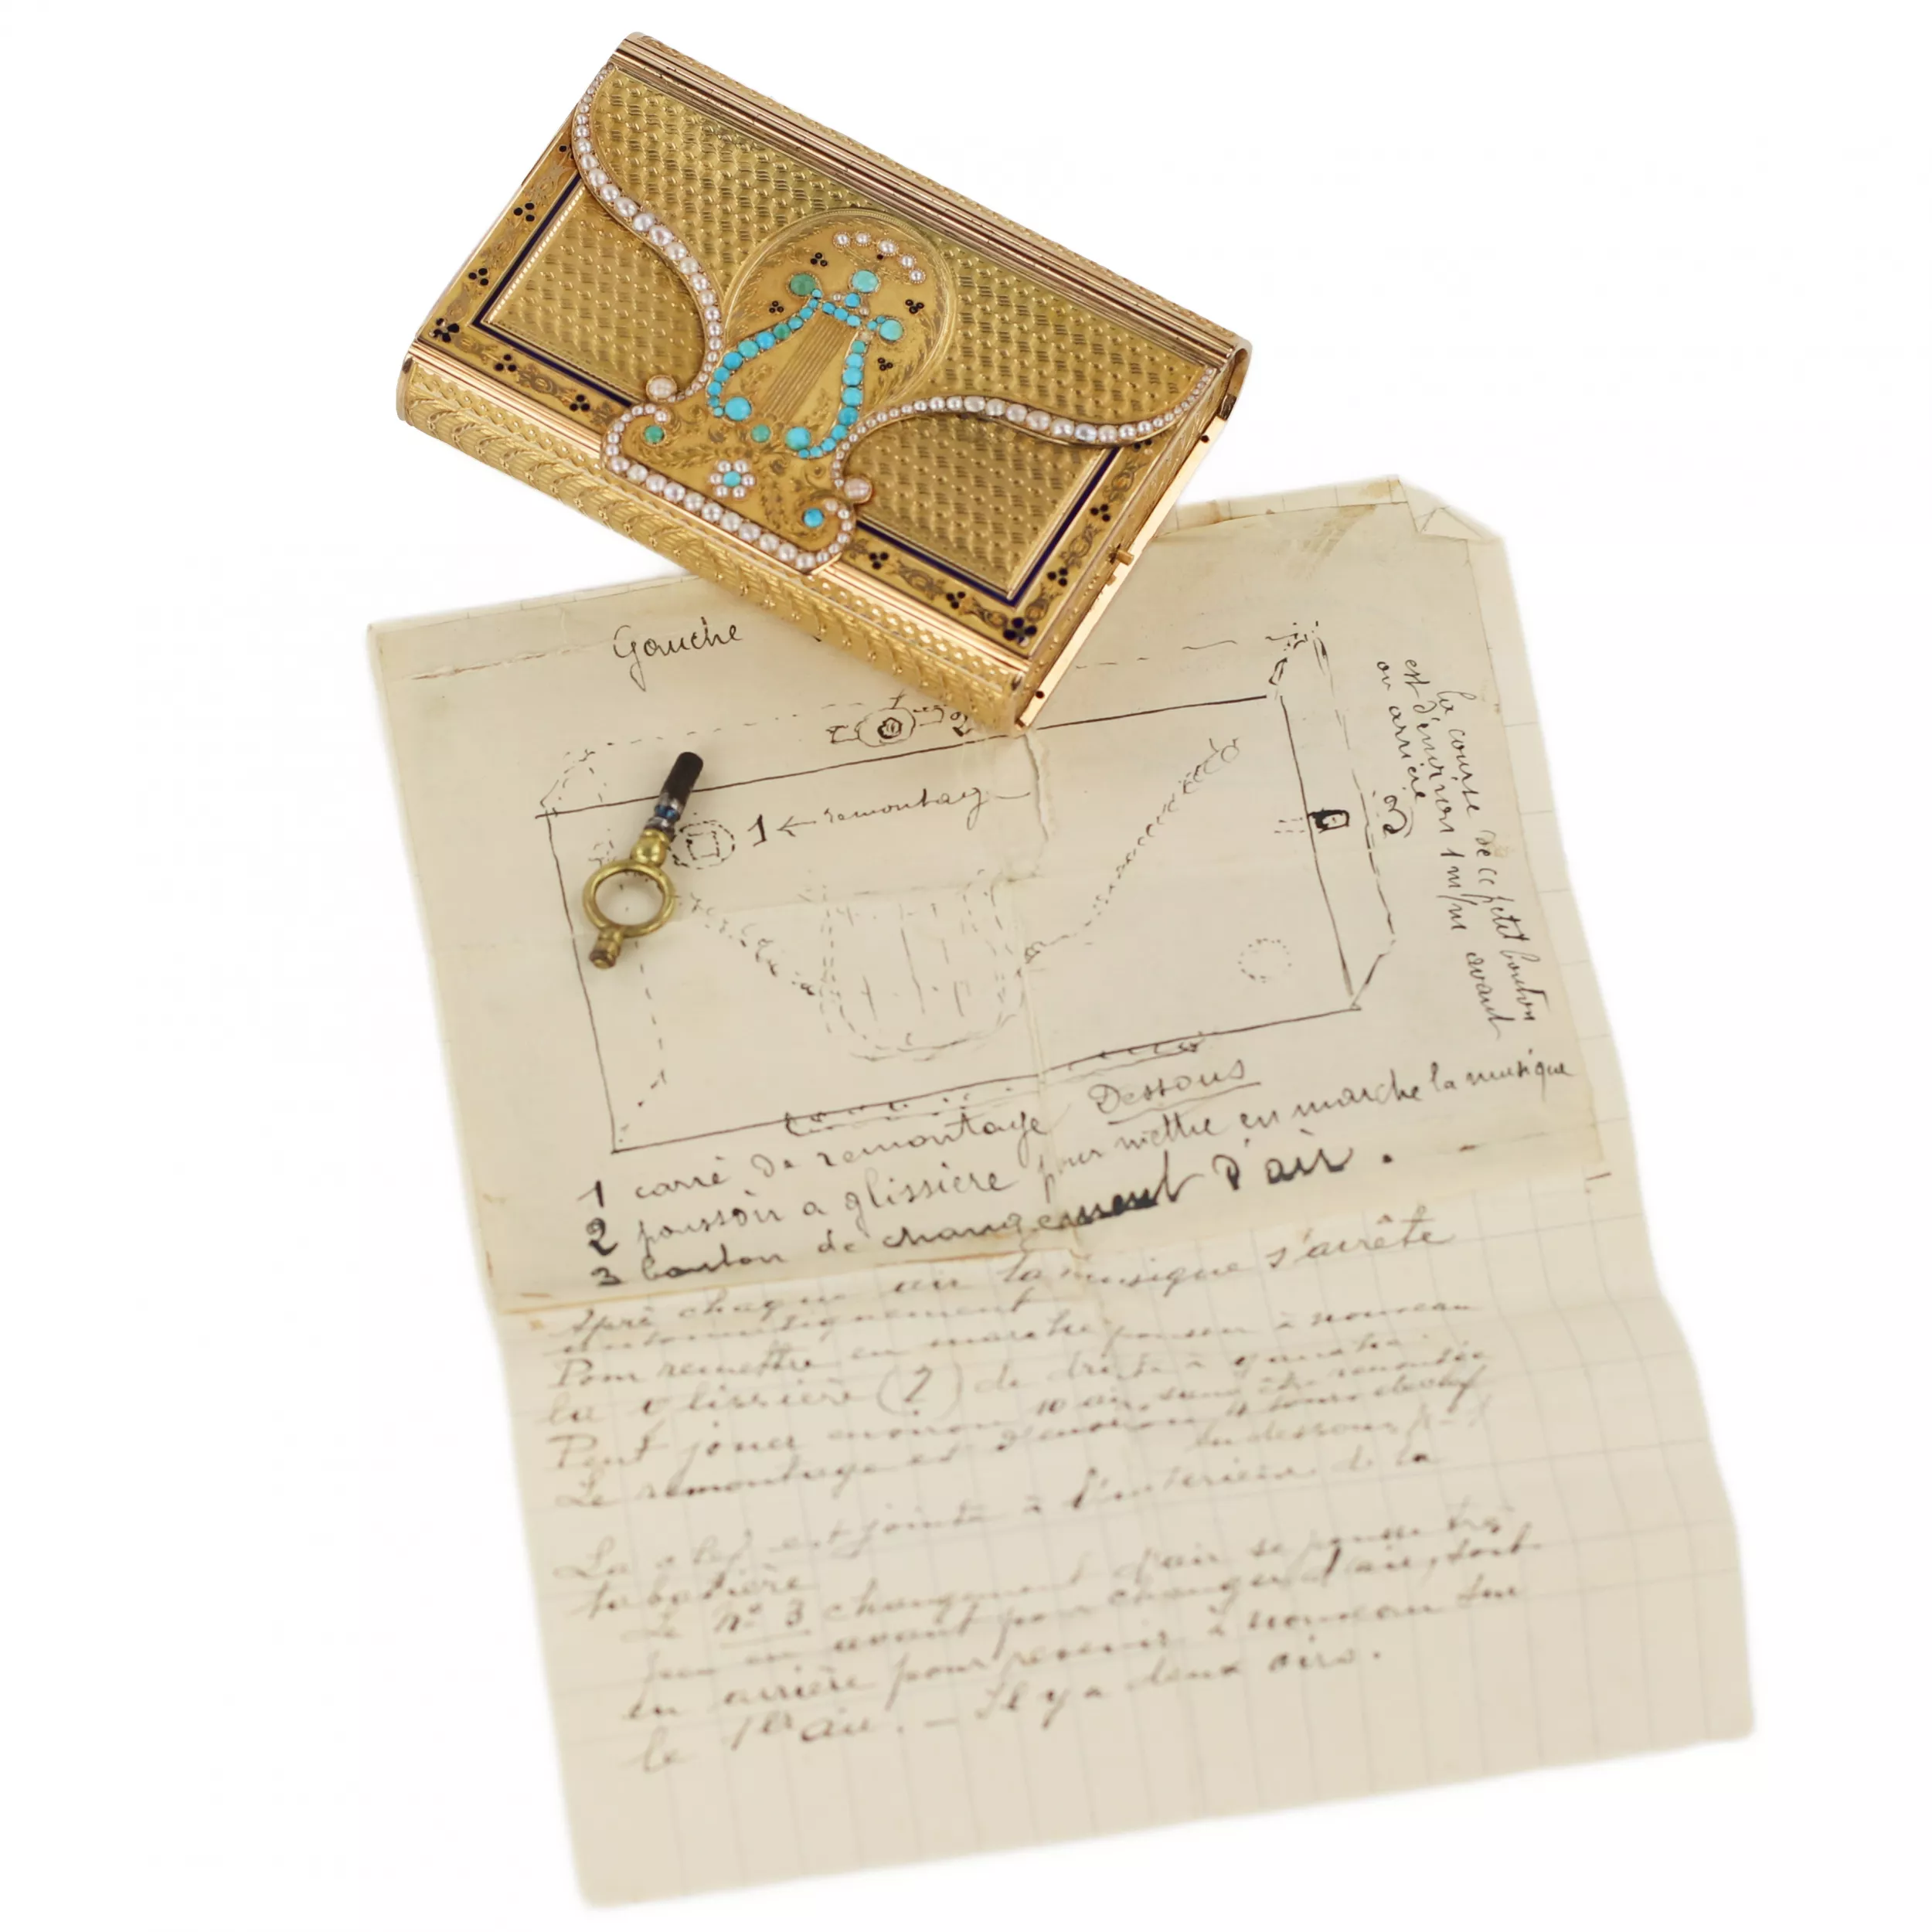 Gauche
2
1 ← remontag
3
la course de ce petit bouton
est d'environ 1 m/m avant
ou arrière
Dessous
1 carré de remontage
2 poussoir a glissière pour mettre en marche la musique
3 bouton de changement d'air.
Aprè chaque air la musique s'arrête
automatiquement
Pour remettre en marche pousser à nouveau
la glissière (2) de droite à gauche
Peut jouer environ 10 air sans être remontée
Le remontage est d'environ 4 tours de clef
en dessous
La clef est jointe à l'interieur de la
tabatière
Le n° 3 changement d'air se pousse très
peu en avant pour changer d'air, soit
en arrière pour revenir à nouveau sur
le 1er air. — Il y a deux airs.